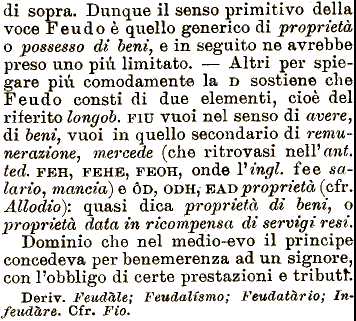 di sopra. Dunque il senso primitivo della
voce Feudo è quello generico di proprietà
o possesso di beni, e in seguito ne avrebbe
preso uno più limitato. — Altri per spie-
gare più comodamente la D sostiene che
Feudo consti di due elementi, cioè del
riferito longob. FIU vuoi nel senso di avere,
di beni, vuoi in quello secondario di remu-
nerazione, mercede (che ritrovasi nell'ant.
ted. FEH, FEHE, FEOH, onde l'ingl. fee sa-
lario, mancia) e ÔD, ODH, EAD proprietà (cfr.
Allodio): quasi dica proprietà di beni, o
proprietà data in ricompensa di servigi resi.
Dominio che nel medio-evo il principe
concedeva per benemerenza ad un signore,
con l'obbligo di certe prestazioni e tributi.
Deriv. Feudàle; Feudalísmo; Feudatàrio; In-
feudàre. Cfr. Fio.